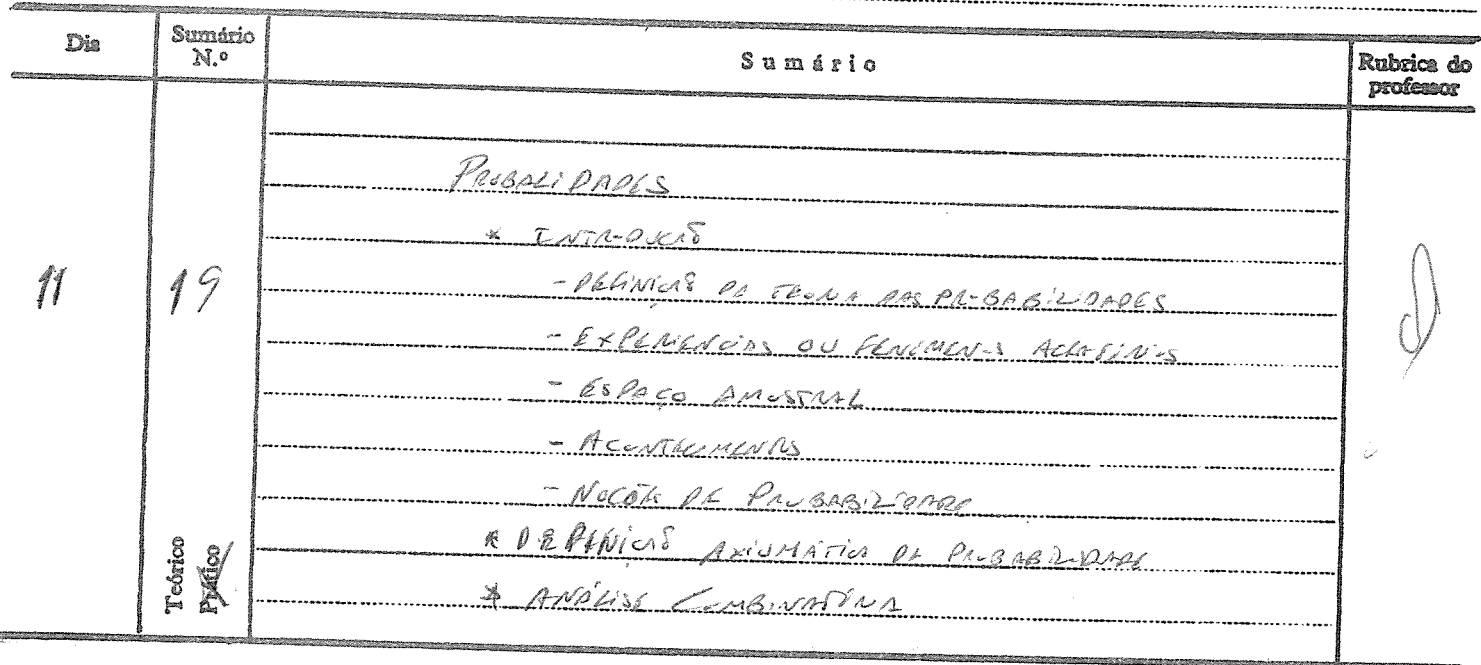 Dia
Sumário N.º
Sumário
Rubrica do professor
11
19
Teórico
Prático
PROBALIDADES
* INTRODUÇÃO
- DEFINIÇÃO DA TEORIA DAS PROBABILIDADES
- EXPERIÊNCIAS OU FENÓMENOS ALEATÓRIOS
- ESPAÇO AMOSTRAL
- ACONTECIMENTOS
- NOÇÕES DE PROBABILIDADE
* DEFINIÇÃO AXIOMÁTICA DE PROBABILIDADE
* ANÁLISE COMBINATÓRIA